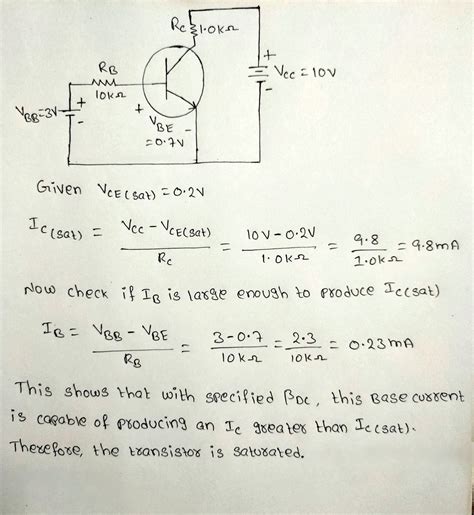 Rc 1.0kΩ
RB
10kΩ
VBB=3V
+
-
+
VBE -
=0.7V
+
Vcc = 10V
-
Given VCE(sat) = 0.2V
Ic(sat) = Vcc - VCE(sat) / Rc = 10V-0.2V / 1.0kΩ = 9.8 / 1.0kΩ = 9.8mA
Now check if IB is large enough to produce Ic(sat)
IB = VBB - VBE / RB = 3-0.7 / 10kΩ = 2.3 / 10kΩ = 0.23mA
This shows that with specified βDC, this Base current
is capable of producing an Ic greater than Ic(sat).
Therefore, the transistor is saturated.